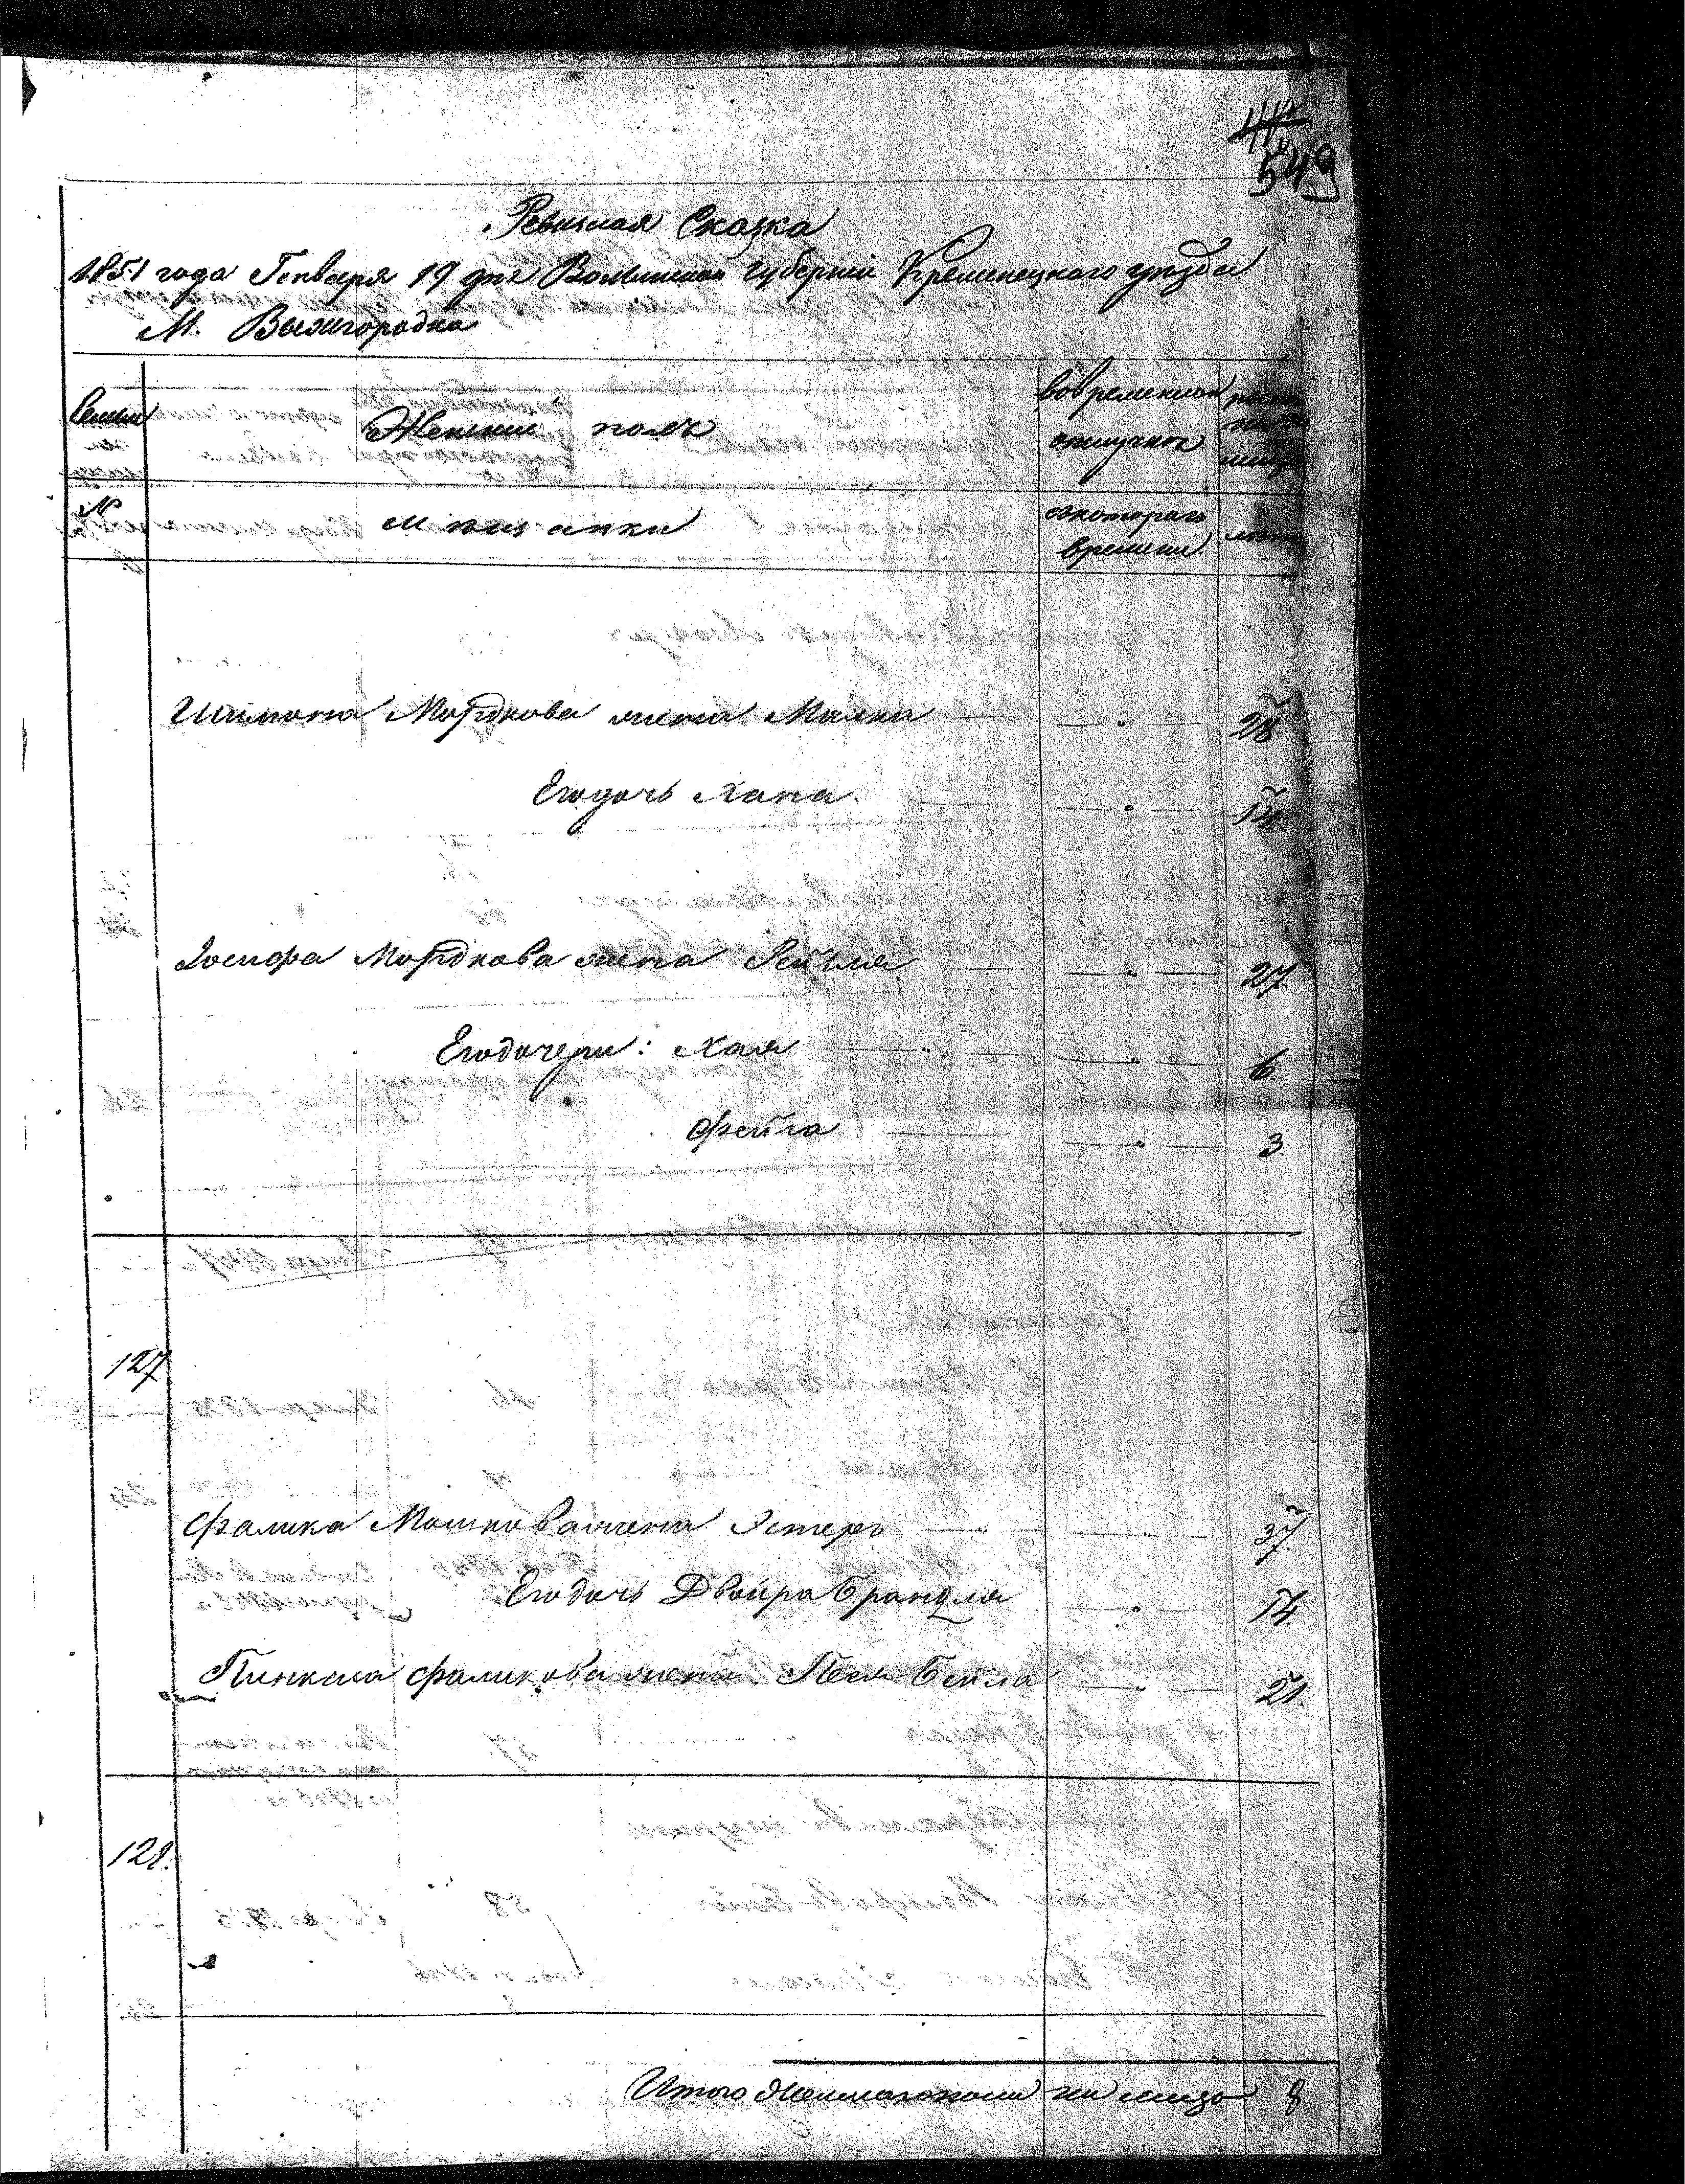 549
Ревизская Сказка
1851 года Генваря 19 дня Волынской губернии Кременецкого уезда
М. Вышгородка
Семьи Женский полъ Вовременной
отлучке
№ мещанки съкотораго
времени
Шимона Мордкова жена Малка — " — 28
Егодочь Хана — " —
Иосифа Мордкова жена Рейзля — " — 27
Егодочери: Хая — " — " — 6
Фейга — " — 3
127
Фалика Мошковажена Эстеръ — " — " — 37
Егодочь Двойра Брандля — " — 14
Пинкаса Фаликова жена Песя Бейла — " — 21
128.
Итого Женскагопола на лицо 8